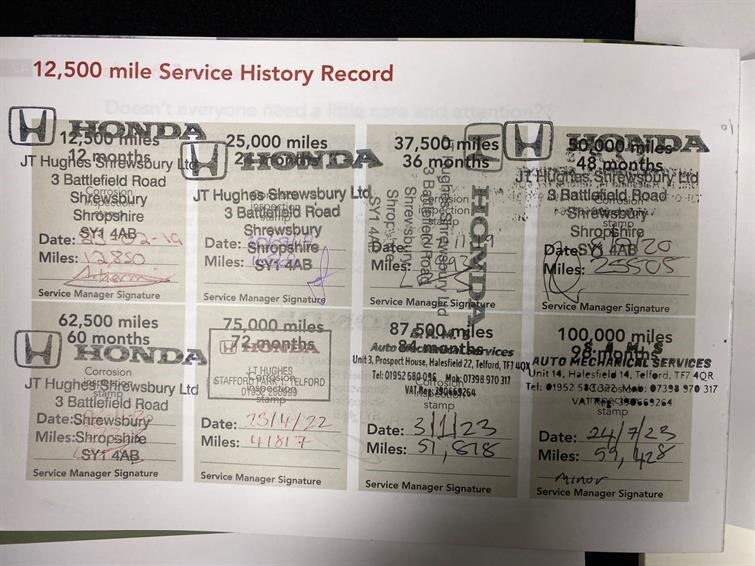 12,500 mile Service History Record
HONDA
12,500 miles
12 months
JT Hughes Shrewsbury Ltd
3 Battlefield Road
Corrosion
Shrewsbury
inspection
Shropshire
SY1 4AB
Date:
Miles: 12850
Service Manager Signature
HONDA
25,000 miles
JT Hughes Shrewsbury Ltd
3 Battlefield Road
Shrewsbury
Shropshire
Date:
Miles: SY1 4AB
Service Manager Signature
37,500 miles
36 months
HONDA
Hughes Shrewsbury Ltd
3 Battlefield Road
Shrewsbury
Shropshire
SY1 4AB
Corrosion
inspection
stamp
Date:
Miles:
Service Manager Signature
HONDA
50,000 miles
48 months
JT Hughes Shrewsbury Ltd
3 Battlefield Road
Corrosion
Shrewsbury
stamp
Shropshire
Date: SY1 4AB 20
Miles: 25505
Service Manager Signature
62,500 miles
60 months
HONDA
JT Hughes Shrewsbury Ltd
Corrosion
3 Battlefield Road
stamp
Date: Shrewsbury
Miles: Shropshire
SY1 4AB
Service Manager Signature
75,000 miles
72 months
HONDA
JT HUGHES
STAFFORD PARK 1, TELFORD
Corrosion
inspection
stamp
Date: 25/4/22
Miles: 41817
Service Manager Signature
87,500 miles
84 months
S.A.M.S
Auto Mechanical Services
Unit 3, Prospect House, Halesfield 22, Telford, TF7 4QX
Tel: 01952 680 096 Mob: 07398 970 317
VAT Reg: 390669264
Corrosion
inspection
stamp
Date: 3/1/23
Miles: 51,878
Service Manager Signature
100,000 miles
S.A.M.S
AUTO MECHANICAL SERVICES
Unit 14, Halesfield 14, Telford, TF7 4QR
Mob: 07398 970 317
VAT Reg: 390669264
stamp
Date: 24/7/23
Miles: 59,428
Minor
Service Manager Signature